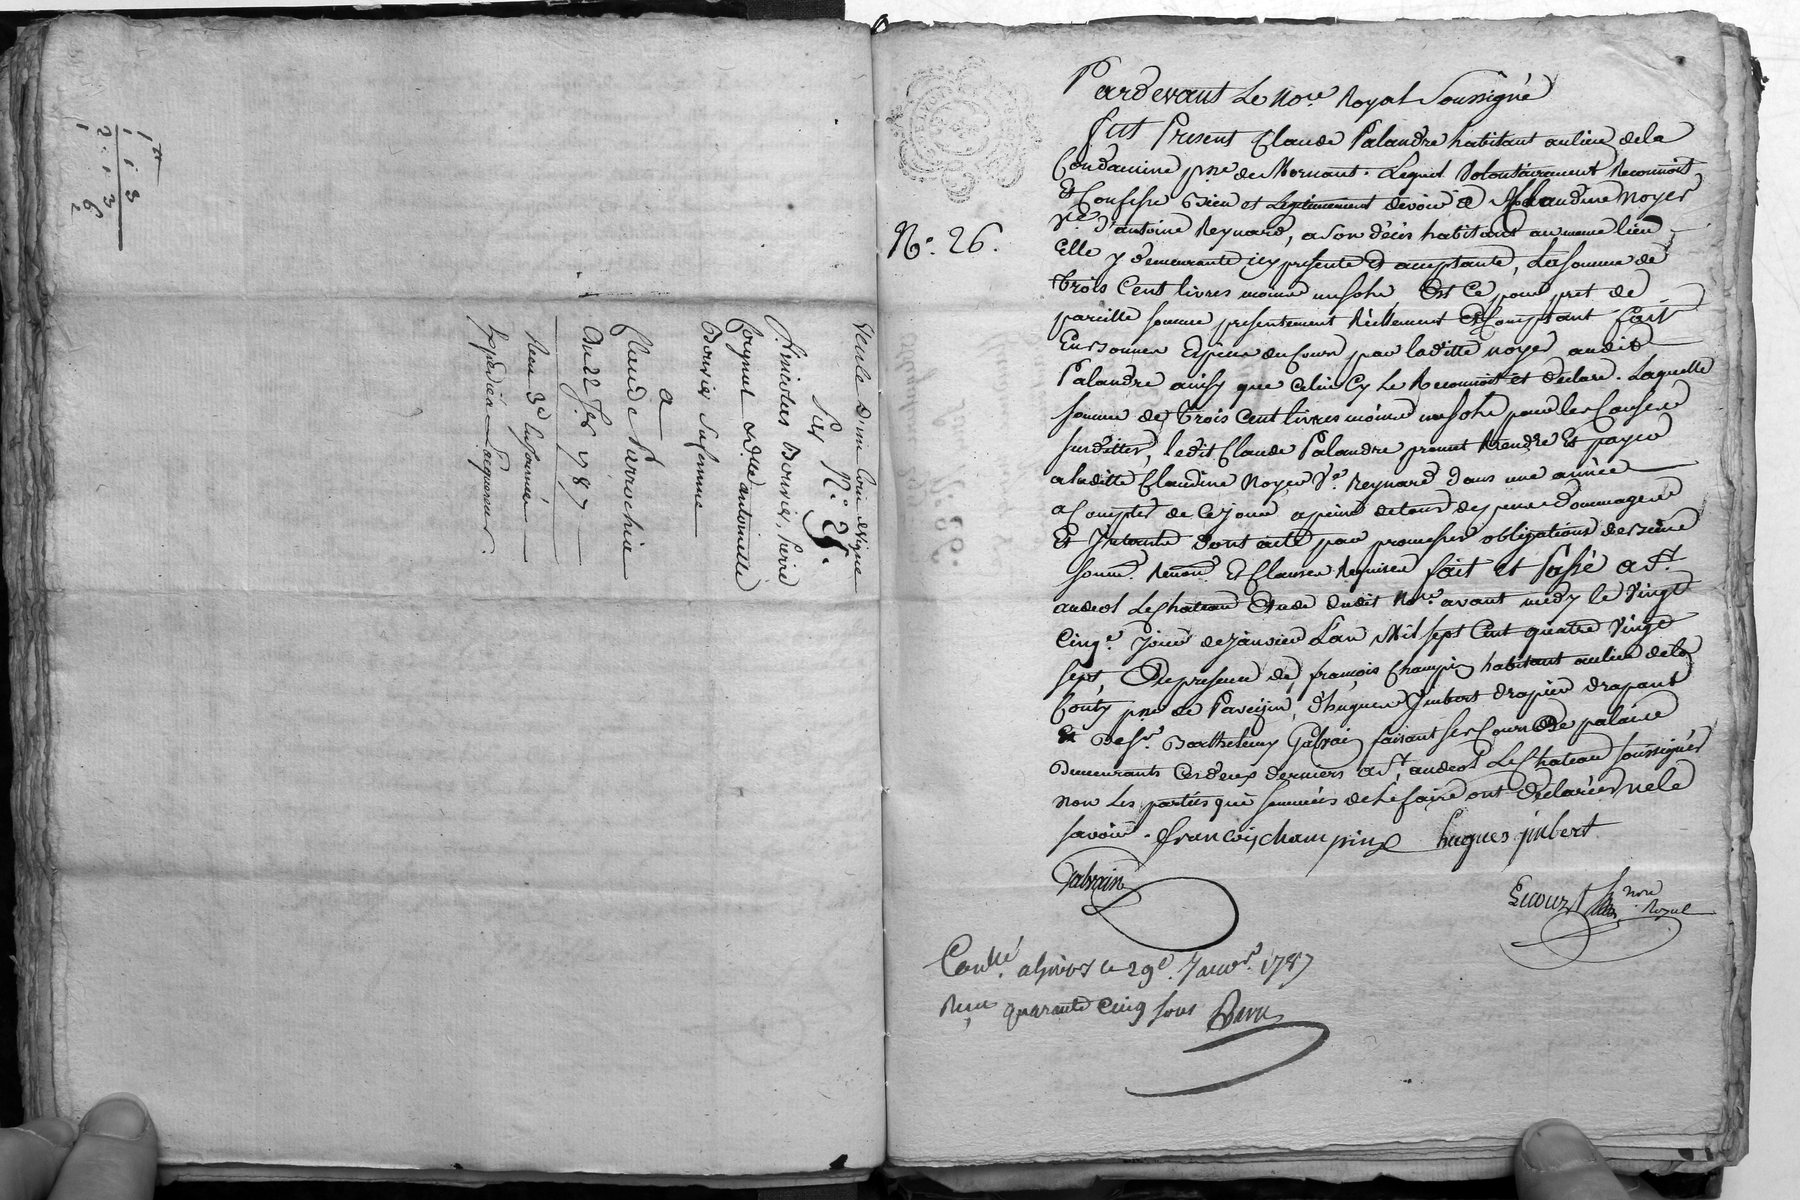 1
1 . 1 . 8
2 . 1 . 3
1 6
Vente d'un Coin de Vigne
Sur N.° 25.
Sr. nicolas Bouvier, herié
Coignet & dlle antoinette
Bouvier Sa femme
a
Claude Parrochia
Du 22 Jer 1787
Reçu 3# 
Expédié a Lacquereur.
Pardevant Le Nore. Royal Soussigné
fut Present Claude Palandre habitant au lieu dela
Condamine psse de Mornant. Lequel Volontairement Reconnoit
Et Confesse Bien et Légitimement devoir à Claudine Noyer
Ve. d'antoine Reynard, a Son décès habitant au meme lieu
Elle y demeurante icy presente et acceptante, La Somme de
Trois Cent livres moins un Sol, Et Ce pour pret de
pareille Somme presentement Réellement Et Comptant fait
En bonnes Especes du Cours par laditte noyer audit
Palandre ainsy que celui Cy Le Reconnoit et declare. Laquelle
Somme de Trois Cent livres moins un Sol pour les Causes
Susdittes, ledit Claude Palandre promet Rendre Et payer
a laditte Claudine Noyer Ve. Reynard dans une année
a Compter de Ce jour a peine de tous depens dommages
Et Interets dont acte par promesses obligations
Soum. Renon. Et Clauses Requises fait et Passé a St.
andeol Le Chateau Etude dudit Nore. avant midy le Vingt
Cinqe. Jour de Janvier L'an Mil Sept Cent quatre Vingt
Sept, En presence de françois Champin habitant au lieu dela
Conty psse de Pavezin, d'hugues Jmbert drapier drapant
Et De Sr. Barthelemy Galvain faisant Ses Cours De palaice
Demeurants Ces deux derniers a St. andeol Le Chateau Soussignés
Non Les parties qui Sommées de Le faire ont declarées ne le
Savoir. francois champin hugues jmbert
Galvain
nore Royal
N.° 26.
Conllé. a Givors le 29e. Janvr. 1787
Reçu quarante Cinq Sous